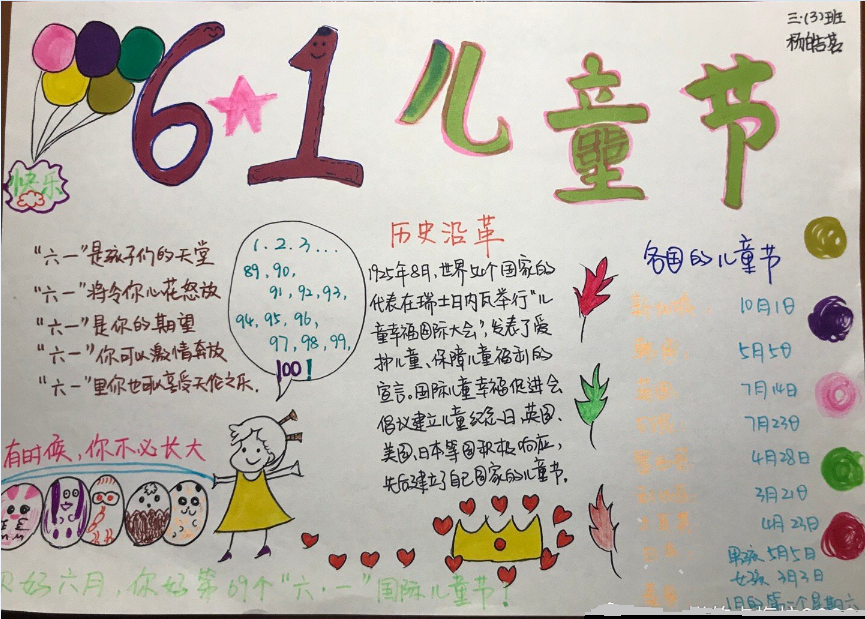 三.(3)班
杨皓茗
6 1 儿童节
快乐
"六一"是孩子们的天堂
"六一"将令你心花怒放
"六一"是你的期望
"六一"你可以激情奔放
"六一"里你也可以享受天伦之乐.
1.2.3...
89,90,
91,92,93,
94,95,96,
97,98,99,
100!
历史沿革
1925年8月,世界54个国家的
代表在瑞士日内瓦举行"儿
童幸福国际大会",发表了爱
护儿童、保障儿童福利的
宣言。国际儿童幸福促进会
倡议建立儿童纪念日,英国、
美国、日本等国积极响应,
先后建立了自己国家的儿童节。
各国的儿童节
10月1日
5月5日
7月14日
7月23日
4月28日
3月21日
4月23日
男孩5月5日
女孩3月3日
1月的第一个星期六
有时候,你不必长大
好六月,你好第69个"六·一"国际儿童节!